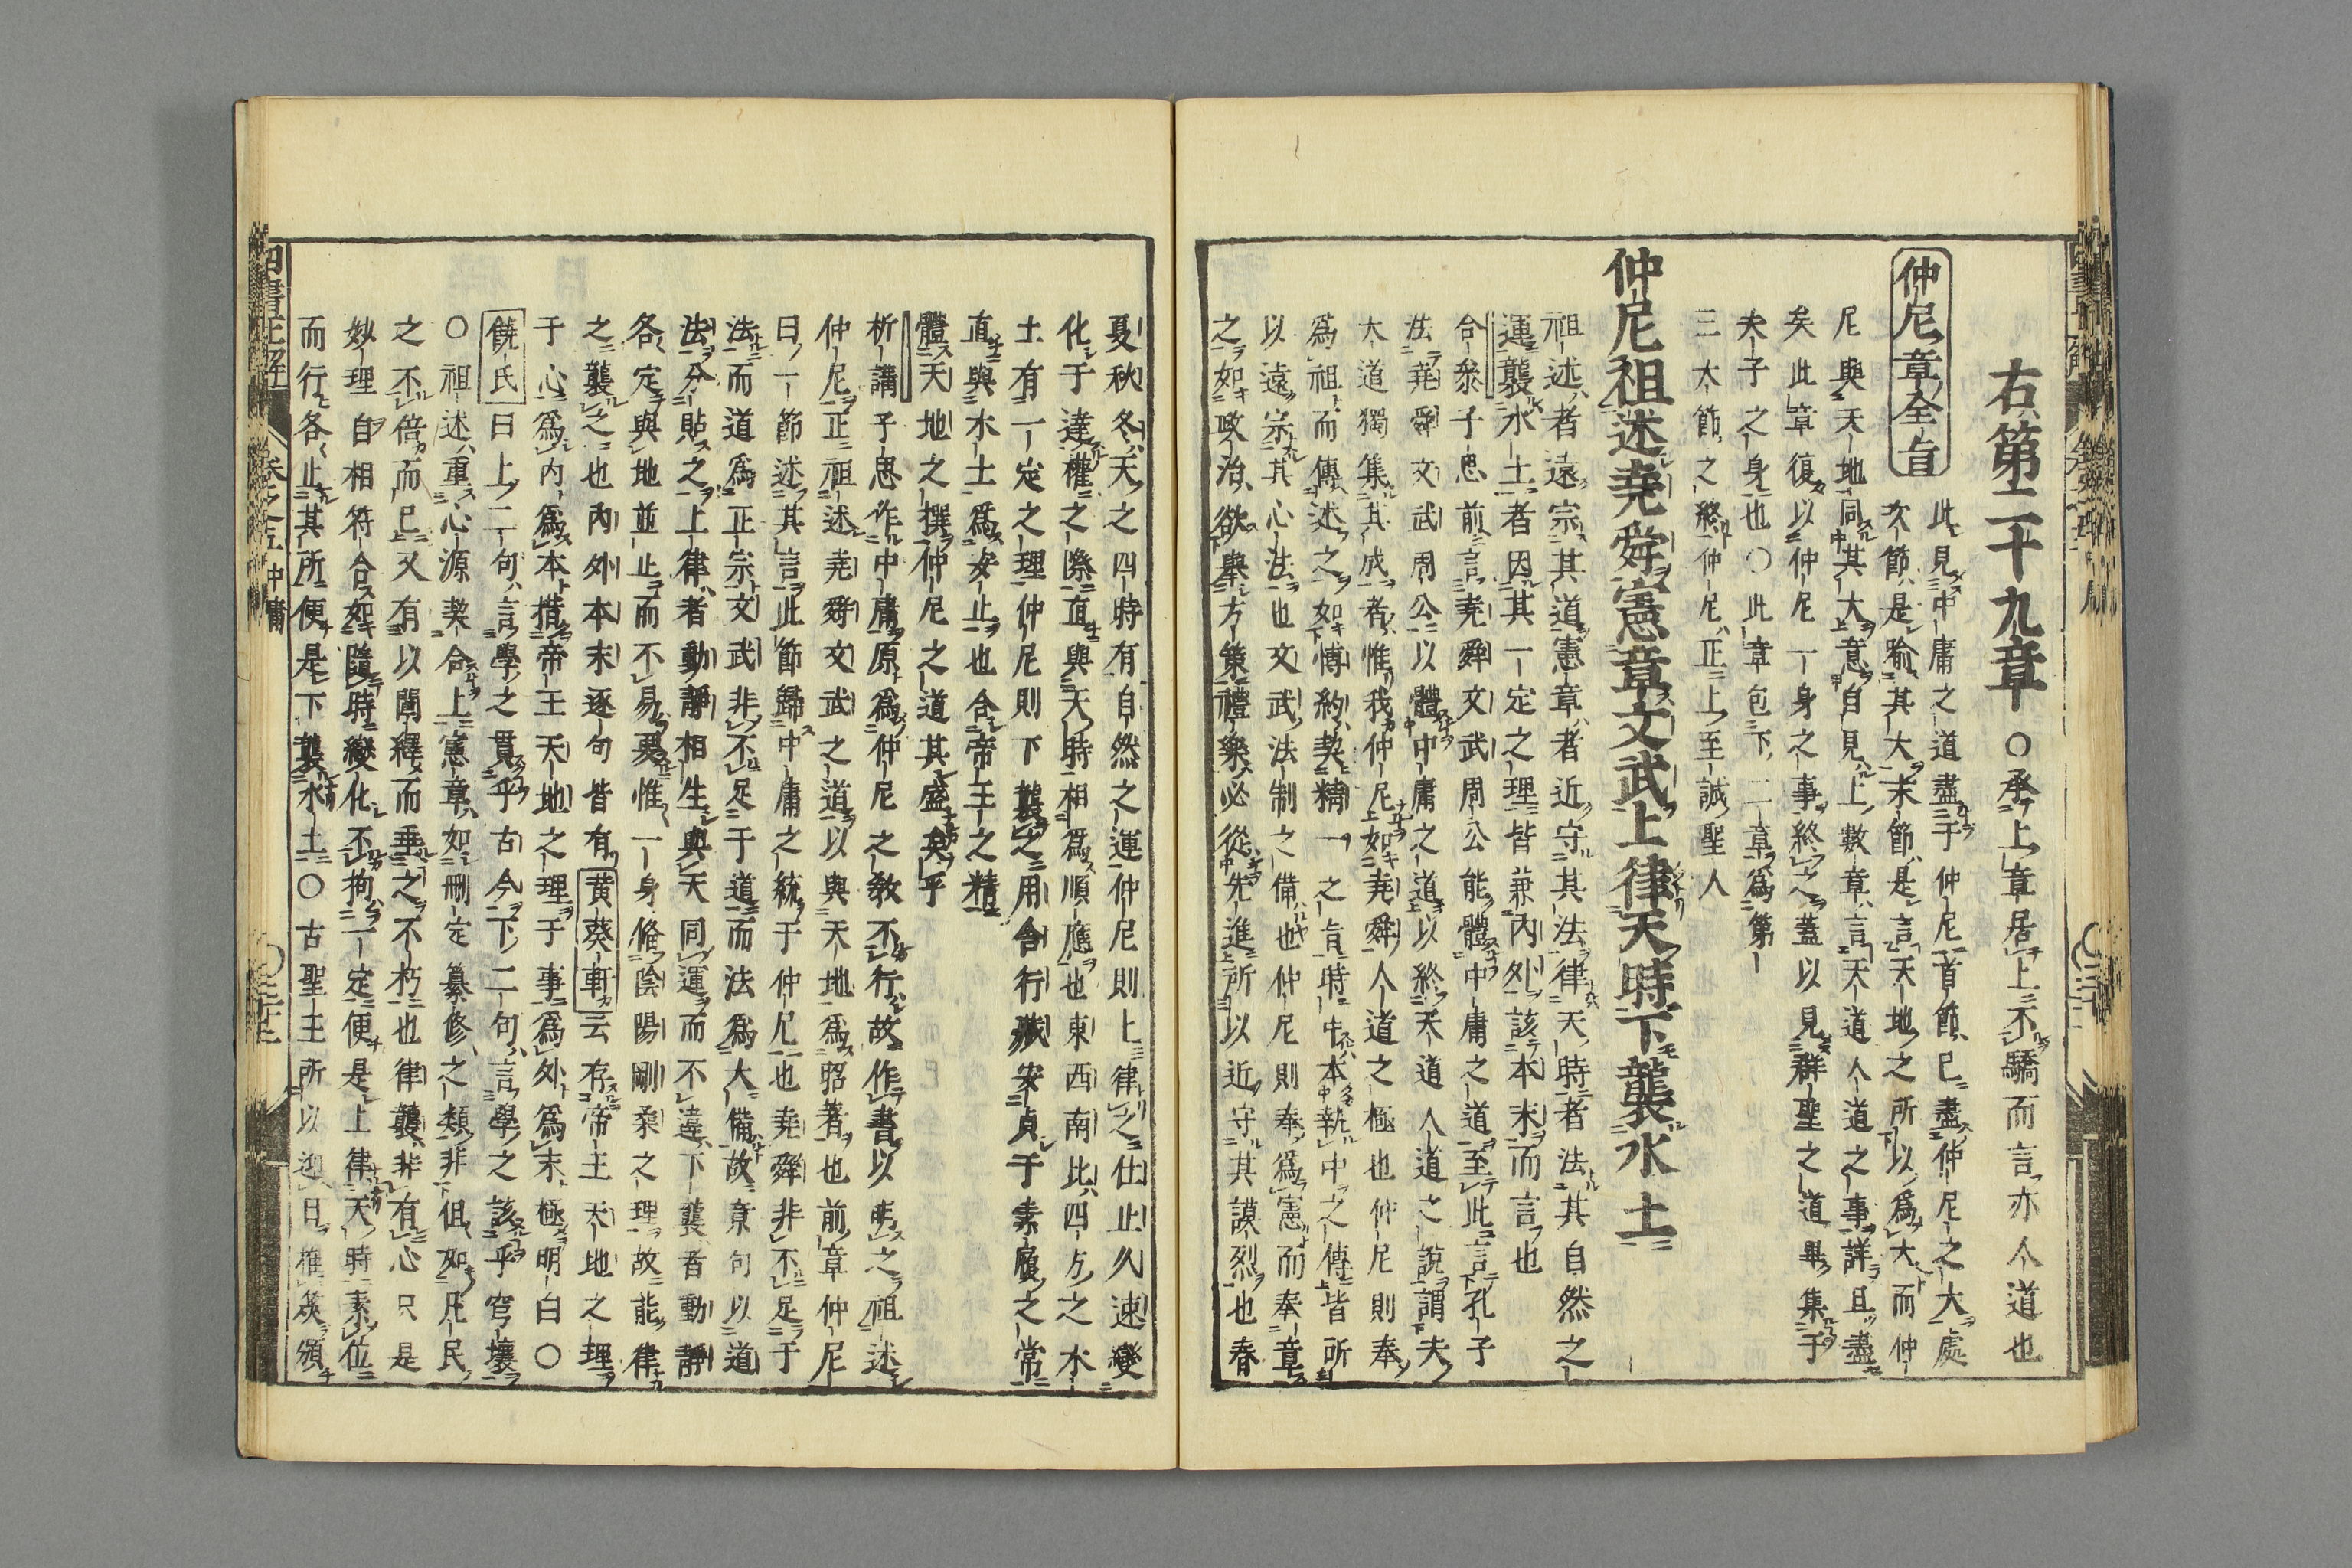 右第二十九章○承上章居上不驕而言亦人道也
仲尼章全旨
此見中庸之道盡于仲尼首節已盡仲尼之大處
次節是喻其大末節是言天地之所以爲大而仲
尼與天地同其大意自見上數章言天道人道之事詳且盡
矣此章復以仲尼一身之事終之蓋以見群聖之道畢集于
夫子之身也○此章包下二章爲第
三大節之終仲尼正上至誠聖人
仲尼祖述堯舜憲章文武上律天時下襲水土
祖述者遠宗其道憲章者近守其法律天時者法其自然之
運襲水土者因其一定之理皆兼內外該本末而言也
合參子思前言堯舜文武周公能體中庸之道至此言孔子
法堯舜文武周公以體中庸之道以終天道人道之說謂夫
大道獨集其成者惟我仲尼如堯舜人道之極也仲尼則奉
爲祖而傳述之如博約契精一之旨時中本執中之傳皆所
以遠宗其心法也文武法制之備也仲尼則奉爲憲而奉章
之如政治欲舉方策禮樂必從先進所以近守其謨烈也春
夏秋冬天之四時有自然之運仲尼則上律之仕止久速變
化于達權之際直與天時相爲順應也東西南北四方之水
土有一定之理仲尼則下襲之用舍行藏安貞于素履之常
直與水土爲安止也合帝王之精
體天地之撰仲尼之道其盛矣乎
析講子思作中庸原爲仲尼之敎不行故作書以明之祖述
仲尼正祖述堯舜文武之道以與天地爲昭著也前章仲尼
曰一節述其言此節歸中庸之統于仲尼也堯舜非不足于
法而道爲正宗文武非不足于道而法爲大備故章句以道
法分貼之上律者動靜相生與天同運而不違下襲者動靜
各定與地並止而不易要惟一身備陰陽剛柔之理故能律
之襲之也內外本末逐句皆有黃葵軒云存帝王天地之理
于心爲內爲本措帝王天地之理于事爲外爲末極明白○
饒氏曰上二句言學之貫乎古今下二句言學之該乎穹壤
○祖述重心源契合上憲章如刪定纂修之類非但如凡民
之不倍而已又有以闡繹而垂之不朽也律襲非有心只是
妙理自相符合如隨時變化不拘一定便是上律天時素位
而行各止其所便是下襲水土○古聖王所以迎日推筴頒
四書正解
卷之五中庸